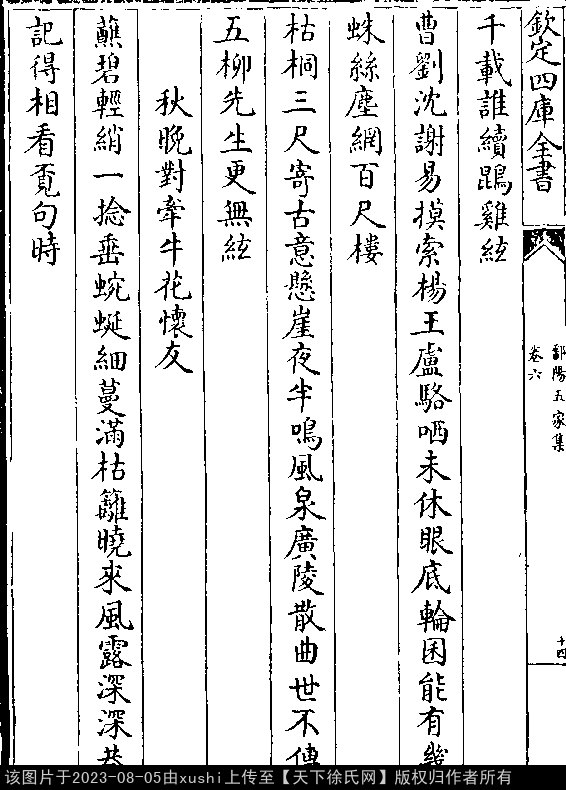 欽定四庫全書
鄱陽五家集
卷六
十四
千載誰續鵾雞絃
曹劉沈謝易摸索楊王盧駱哂未休眼底輪囷能有幾
蛛絲塵網百尺樓
枯桐三尺寄古意懸崖夜半鳴風泉廣陵散曲世不傳
五柳先生更無絃
秋晚對牽牛花懷友
蘸碧輕綃一捻垂蜿蜒細蔓滿枯籬曉來風露深深
記得相看覔句時
该图片于2023-08-05由xushi上传至【天下徐氏网】版权归作者所有